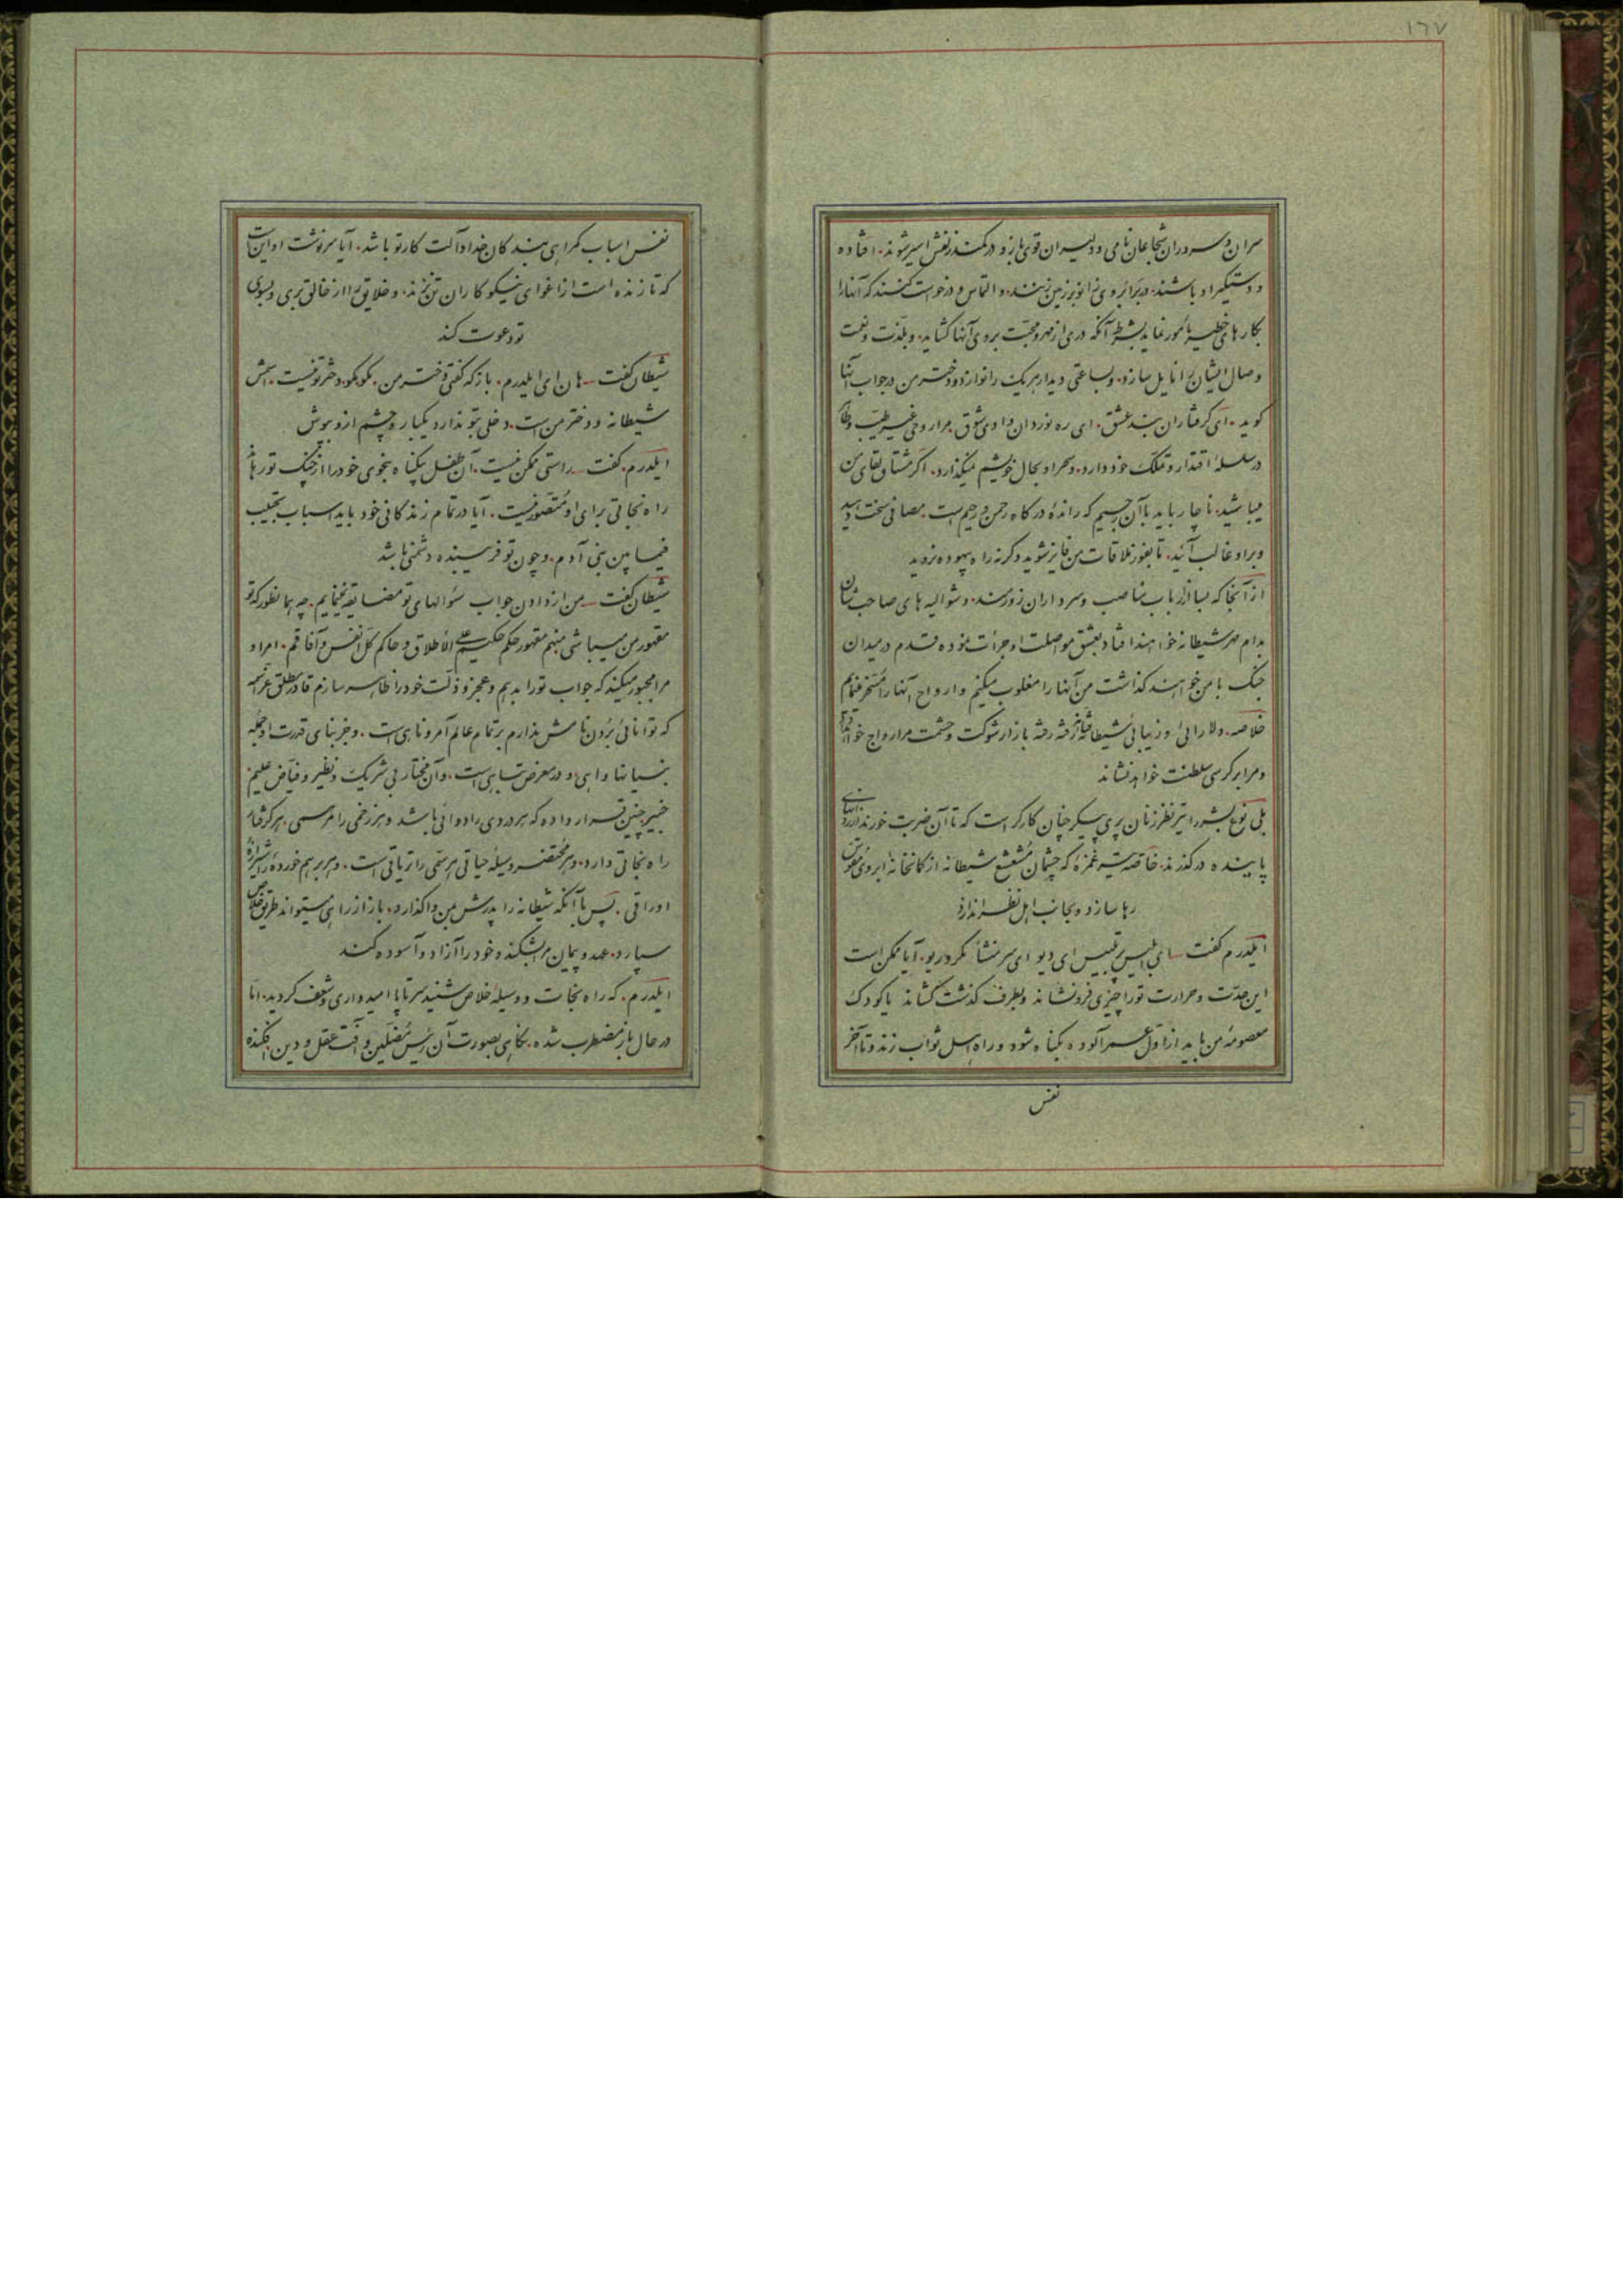 ١٦٧
سران و سروران شجاعان نامی و دلیران قوی بازو در کمند زلفش اسیر شوند. افتاده
و دستگیر او باشند. در برابر وی زانو بر زمین زنند. و التماس و درخواست کنند که آنها را
بکارهای خطیر مأمور نماید بشرط آنکه دری از مهر و محبت بروی آنها گشاید. و بلذت و نعمت
وصال ایشان را نایل سازد. و بساعتی دیدار هر یک را نوازد و دختر من در جواب آنها
گوید. ای گرفتاران بند عشق. ای ره نوردان وادی شوق. مرا روحی غیر طیب و طاهر
در سلسلهٔ اقتدار و تملک خود دارد. و سحر او بحال خویشم نمیگذارد. اگر مشتاق لقای من
میباشید. ناچار باید با آن رجیم که راندهٔ درگاه رحمن و رحیم است. مصافی سخت دهید
و بر او غالب آئید. تا بفوز ملاقات من فایز شوید و گرنه راه بیهوده نروید
از آنجا که بسا ارباب مناصب و سرداران زورمند. و شوالیه های صاحب شان
بدام مهر شیطانه خواهند افتاد و بعشق مواصلت او جرأت نموده قدم در میدان
جنگ با من خواهند گذاشت من آنها را مغلوب میکنم و ارواح آنها را مسخر نمایم
خلاصه. دلارائی و زیبائی شیطانه رفته رفته بازار شوکت و حشمت مرا رواج خواهد داد
و مرا بر کرسی سلطنت خواهد نشاند
بلی نوع بشر را تیر نظر زنان پری پیکر چنان کارگر است که تا آن ضربت خورند از
پاینده درگذرند. خاصه تیر غمزهٔ که چشمان مشعشع شیطانه از کمانخانهٔ ابروی مقوس
رها سازد و بجانب اهل نظر اندازد
ایلدرم گفت ای ابلیس پر تلبیس ای دیو ای سر منشأ مکر و ریو. آیا ممکن است
این حدت و حرارت تو را چیزی فرو نشاند و بطرف گذشت کشاند یا کودک
معصومهٔ من باید از اول عمر آلوده بگناه شود و راه اهل ثواب زند و تا آخر
نفس
نفس اسباب گمراهی بندگان خدا و آلت کار تو باشد. آیا سرنوشت او این است
که تا زنده است از اغوای نیکوکاران تن نزند. و خلایق را از خالق بری و بسوی
تو دعوت کند
شیطان گفت هان ای ایلدرم. باز که گفتی دختر من. مگو مگو. دختر تو نیست. اسمش
شیطانه و دختر من است. دخلی بتو ندارد یکبار چشم از او بپوش
ایلدرم. گفت راستی ممکن نیست. آن طفل بیگناه بنحوی خود را از چنگ تو رهاند
راه نجاتی برای او متصور نیست. آیا در تمام زندگانی خود باید اسباب تخبیب
فیما بین بنی آدم. و چون تو فریبنده دشمنی باشد
شیطان گفت من از دادن جواب سئوالهای تو مضایقه نمینمایم. چه همانطور که تو
مقهور من میباشی منهم مقهور حکم حکیم علی الاطلاق و حاکم کل انفس و آفاقم. امر او
مرا مجبور میکند که جواب تو را بدهم و عجز و ذلت خود را ظاهر سازم قادر مطلق عز اسمه
که توانائی بردن نامش ندارم بر تمام عالم آمر و ناهی است. و جز بنای قدرت او جمله
بنیانها واهی و در معرض تباهی است. و آن مختار بی شریک و نظیر و فیاض علیم
خبیر چنین قرار داده که هر دردی را دوائی باشد و هر زخمی را مرهمی. هر گرفتار
راه نجاتی دارد. و هر محتضر وسیلهٔ حیاتی هر سمی را تریاقی است. و هر بر هم خورده را شیرازهٔ
اوراقی. پس با آنکه شیطانه را پدرش بمن واگذارد. باز از راهی میتواند طریق خلاص
سپارد. عهد و پیمان مرا بشکند و خود را آزاد و آسوده کند
ایلدرم. که راه نجات و وسیلهٔ خلاص شنید سر تا پا امیدواری و شعف گردید. اما
در حال باز مضطرب شده. نگاهی بصورت آن رئیس مضلین و آفت عقل و دین افکنده